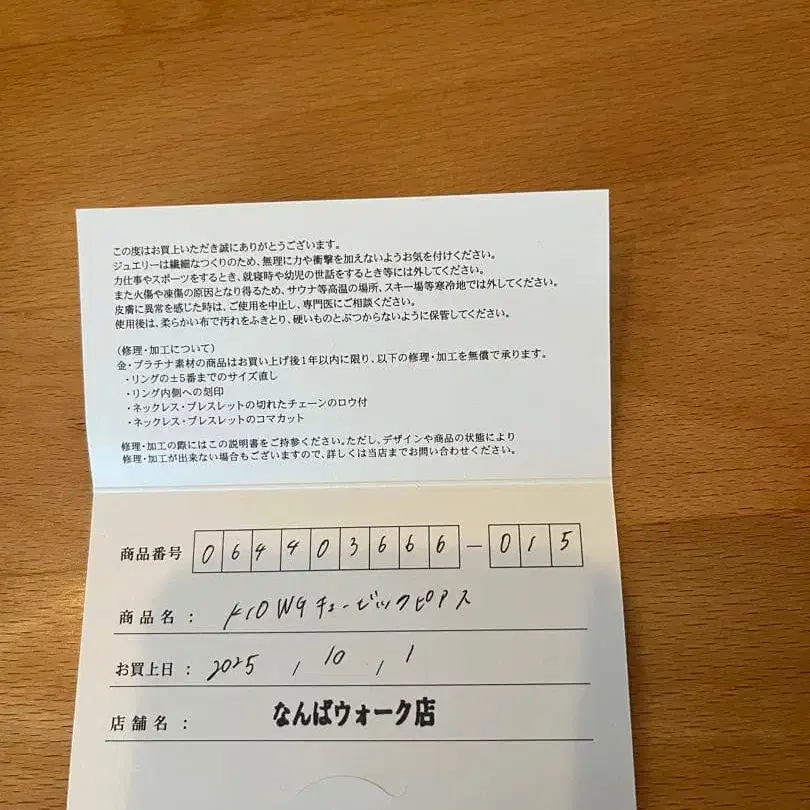 この度はお買上いただき誠にありがとうございます。
ジュエリーは繊細なつくりのため、無理に力や衝撃を加えないようお気を付けください。
力仕事やスポーツをするとき、就寝時や幼児の世話をするとき等には外してください。
また火傷や凍傷の原因となり得るため、サウナ等高温の場所、スキー場等寒冷地では外してください。
皮膚に異常を感じた時は、ご使用を中止し、専門医にご相談ください。
使用後は、柔らかい布で汚れをふきとり、硬いものとぶつからないように保管してください。
(修理・加工について)
金・プラチナ素材の商品はお買い上げ後1年以内に限り、以下の修理・加工を無償で承ります。
・リングの±5番までのサイズ直し
・リング内側への刻印
・ネックレス・ブレスレットの切れたチェーンのロウ付
・ネックレス・ブレスレットのコマカット
修理・加工の際にはこの説明書をご持参ください。ただし、デザインや商品の状態により
修理・加工が出来ない場合もございますので、詳しくは当店までお問い合わせください。
商品番号 064403666-015
商品名: K10WGキュービックピアス
お買上日: 2025, 10, 1
店舗名: なんばウォーク店